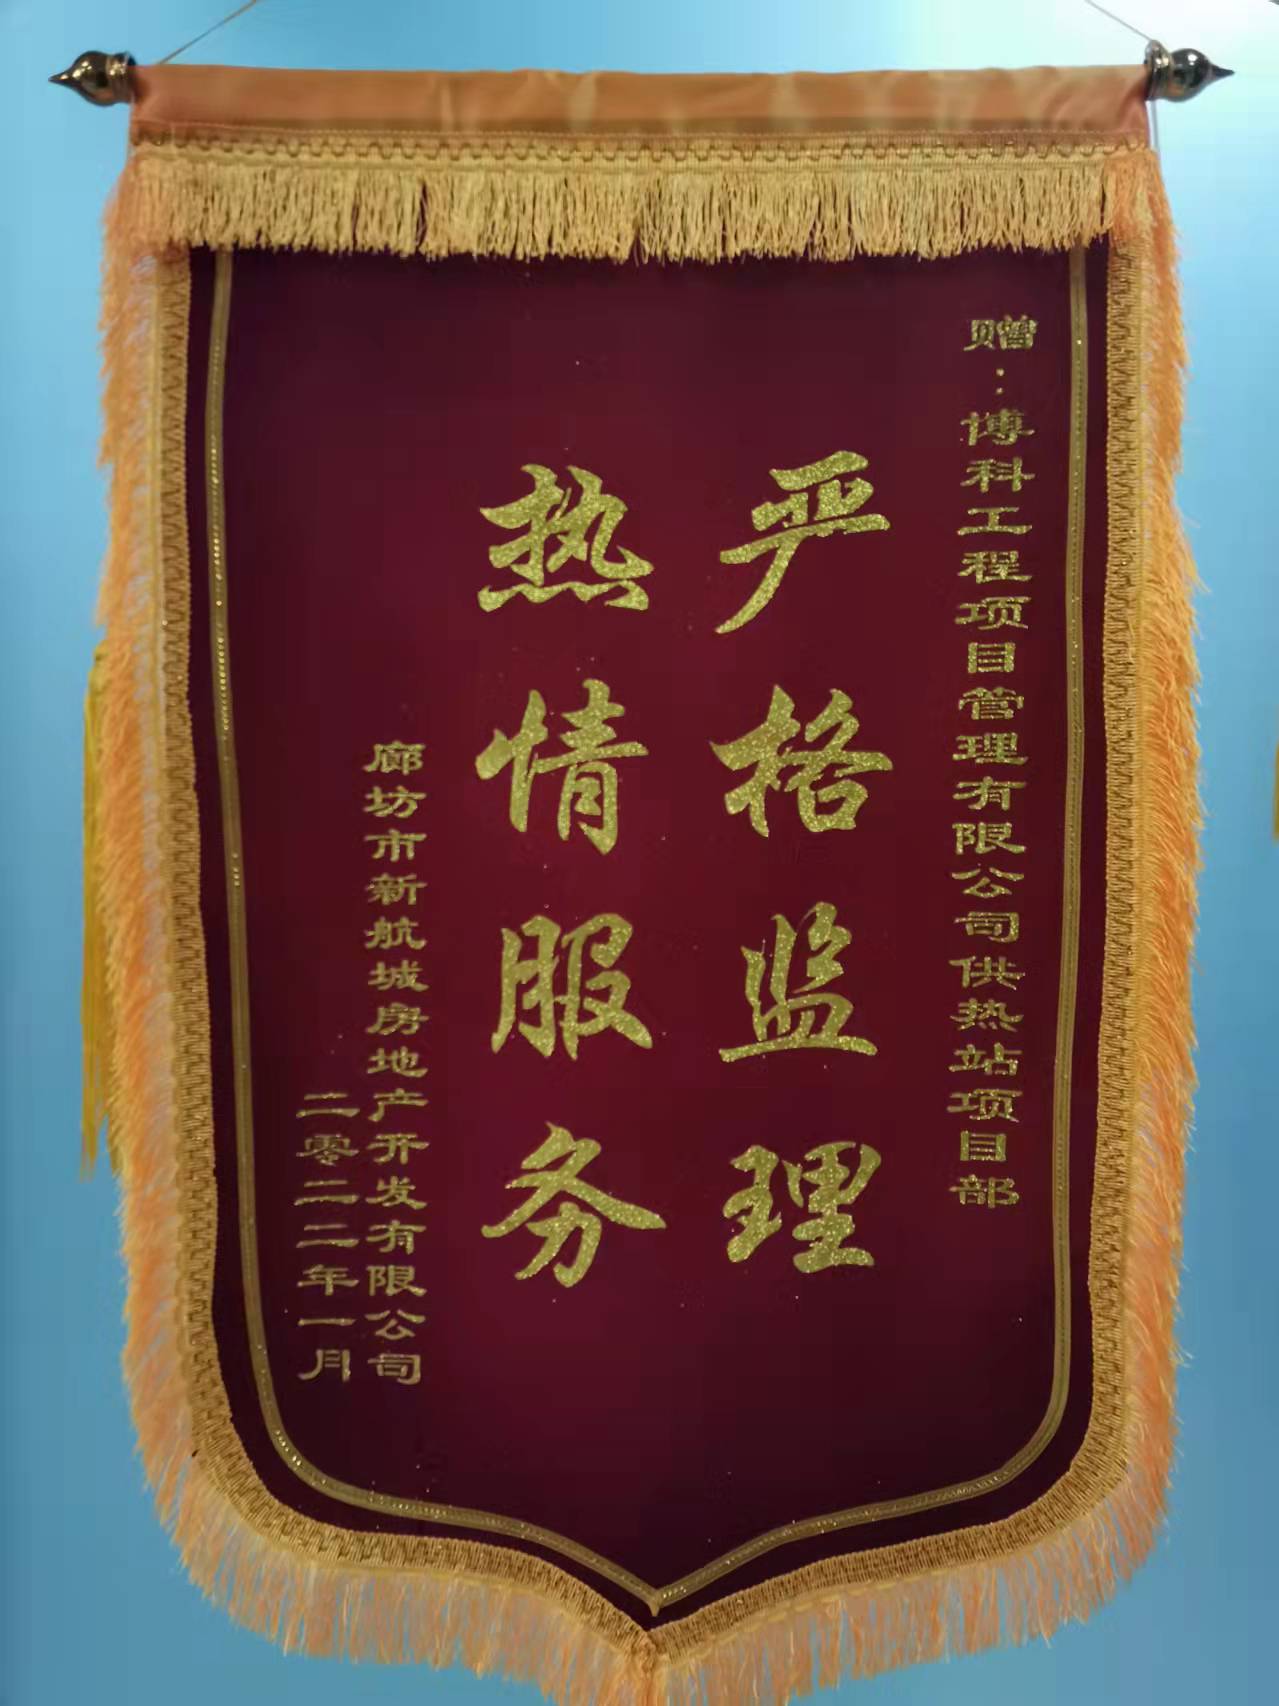 赠：博科工程项目管理有限公司供热站项目部
严格监理
热情服务
廊坊市新航城房地产开发有限公司
二零二二年一月